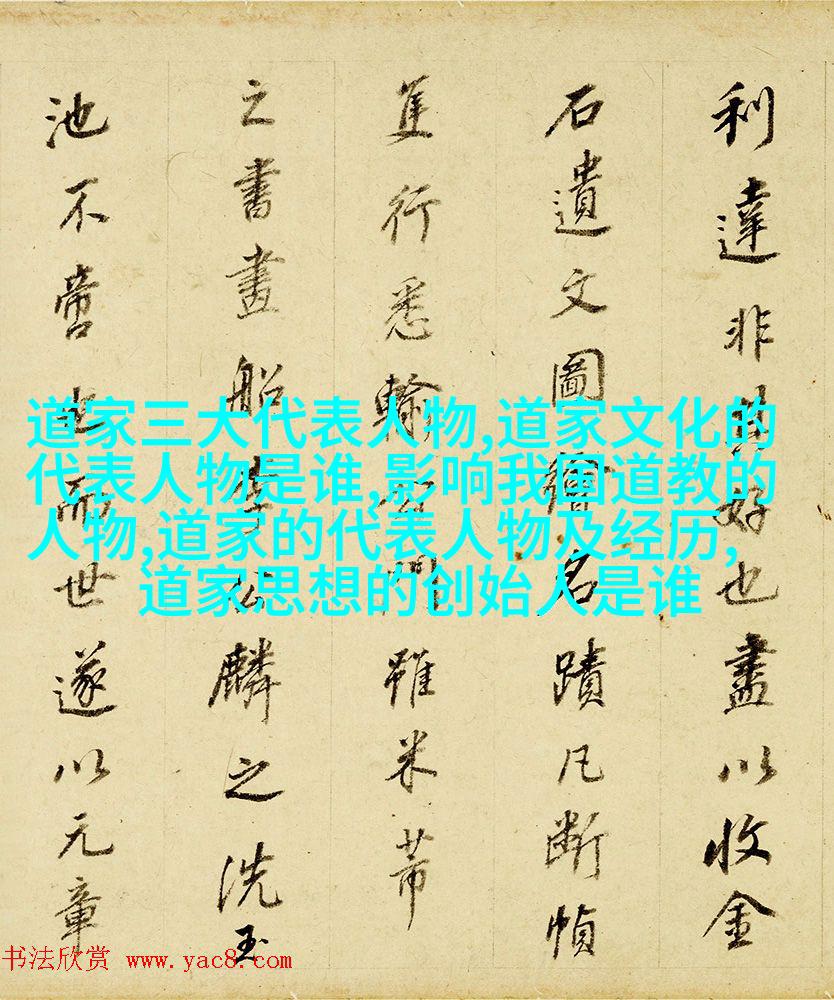 利達非其好也盡以收金
石遺文圖繪名蹟凡斷幀
隻行悉輸公門雖米芾
之書畫船李公麟之洗玉
池不啻也而世遂以元章
道家三大代表人物,道家文化的
代表人物是谁,影响我国道教的
人物,道家的代表人物及经历,
道家思想的创始人是谁
书法欣赏 www.yac8.com